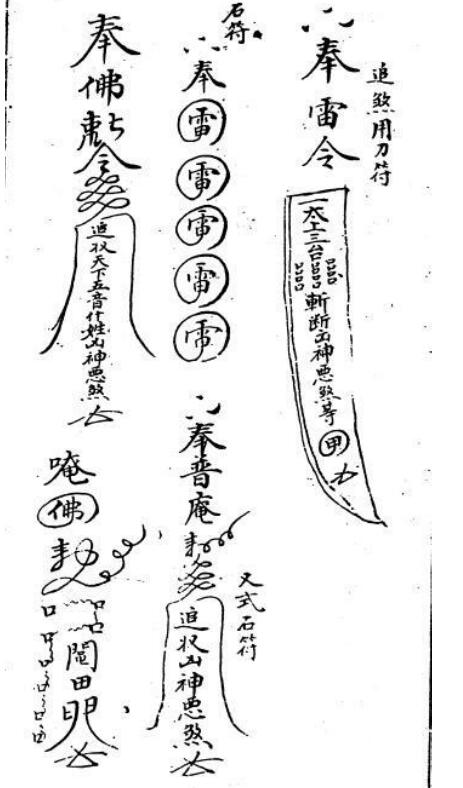 追煞用刀符
奉雷令
太上三台
斬断凶神悪煞等
甲
石符
奉雷雷雷雷
奉普庵
追収凶神悪煞
又式石符
奉佛敕令
追収天下五音什姓凶神悪煞
唵佛勅